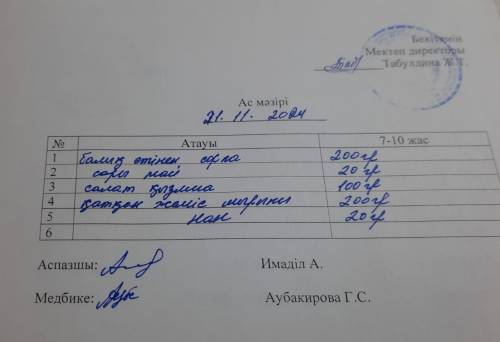 Бекітемін
Мектеп директоры
Табулдина А.Т.
Ас мәзірі
21. 11. 2024
№ Атауы 7-10 жас
1 балық етінен сорпа 200 гр
2 сары май 20 гр
3 салат қызылша 100 гр
4 қатқан жеміс шырыны 200 гр
5 нан 20 гр
6
Аспазшы: Имаділ А.
Медбике: Аубакирова Г.С.